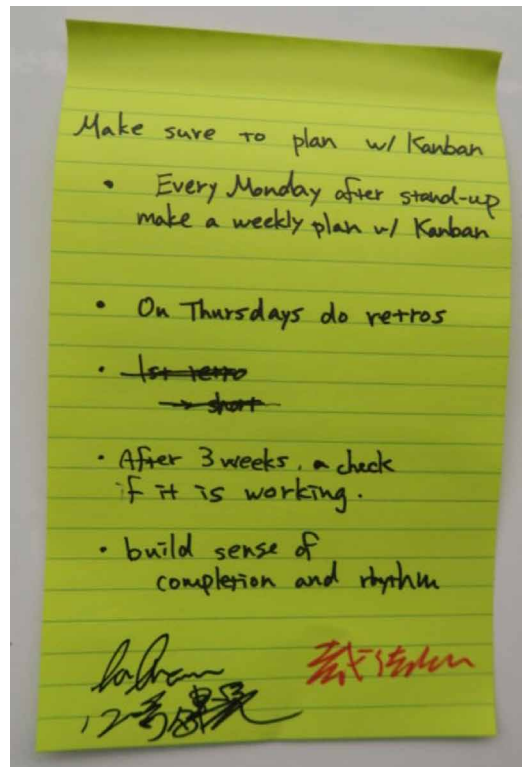 Make sure to plan w/ Kanban
• Every Monday after stand-up
make a weekly plan w/ Kanban
• On Thursdays do retros
• 1st retro
→ short
• After 3 weeks, a check
if it is working.
• build sense of
completion and rhythm